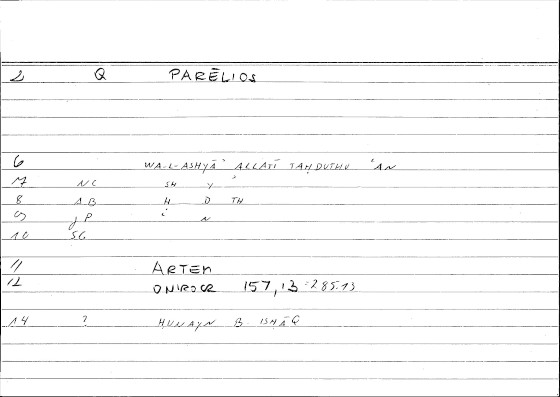 2 Q PARĒLIOS
6 WA-L-ASHYĀʾ ALLATĪ TAḤDUTHU ʿAN
7 NC SH Y ʾ
8 AB Ḥ D TH
9 JP ʿ N
10 SG
11 ARTEM
12 ONIROCR 157,13=285.13
14 ? ḤUNAYN B ISḤĀQ